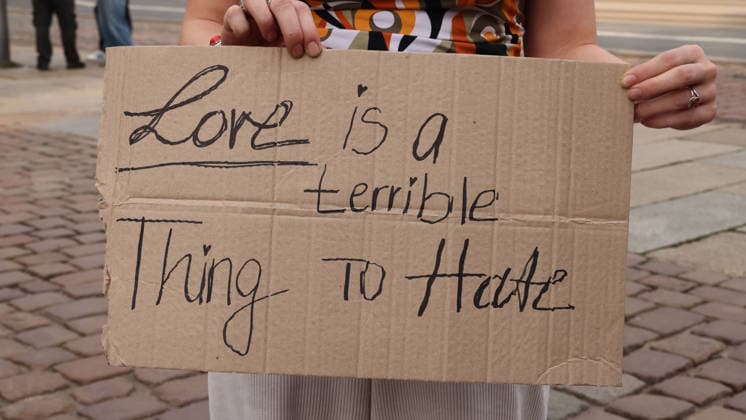 Love is a
terrible
Thing To Hate